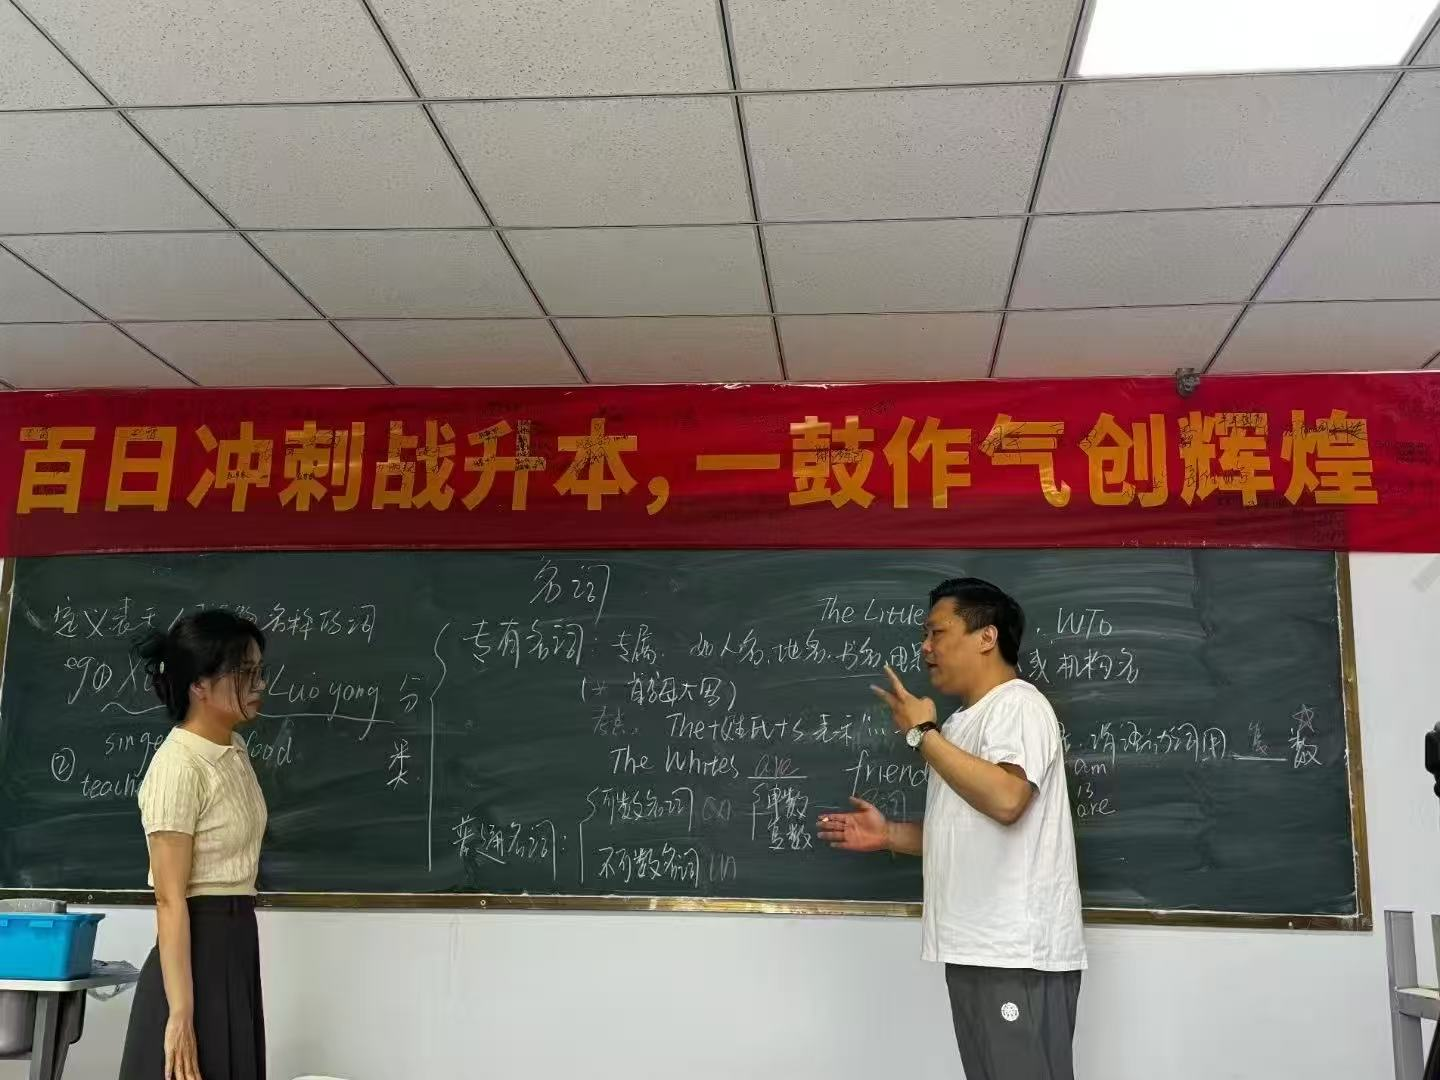 百日冲刺战升本，一鼓作气创辉煌
名词
定义表示人 名称的词
eg① Luoyang
② singe ood.
teach
分类
专有名词：专属. 如人名.地名.书名. 或机构名
The Little , WTO
(首字母大写)
The+姓氏+s 表示 谓语动词用 复数
The Whites are friend
am
is
are
普通名词：
可数名词 cn
单数
复数
不可数名词 un